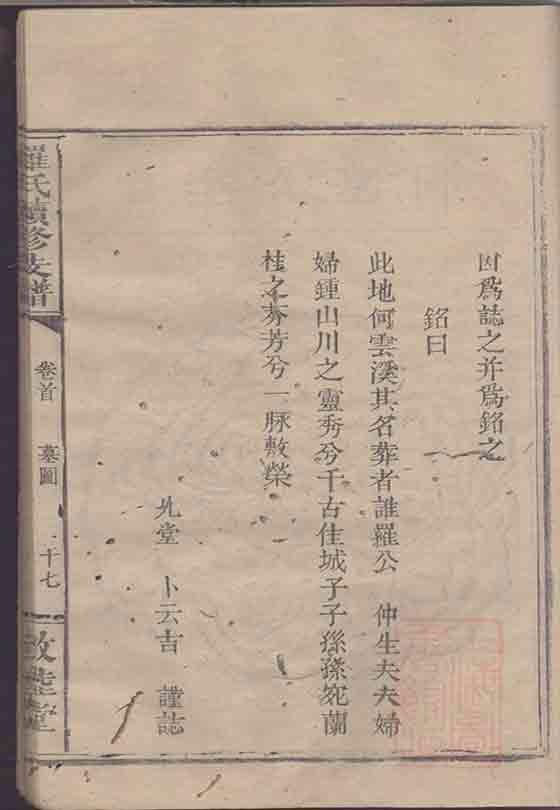 因爲誌之并爲銘之
銘曰
此地何雲溪其名葬者誰羅公 仲生夫夫婦
婦鍾山川之靈秀兮千古佳城子子孫孫宛蘭
桂之芬芳兮一脉敷榮
允堂 卜云吉 謹誌
羅氏續修支譜
卷首 墓圖 十七
敦睦堂